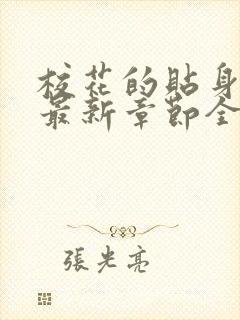 校花的貼身
最新章節全
張光亮